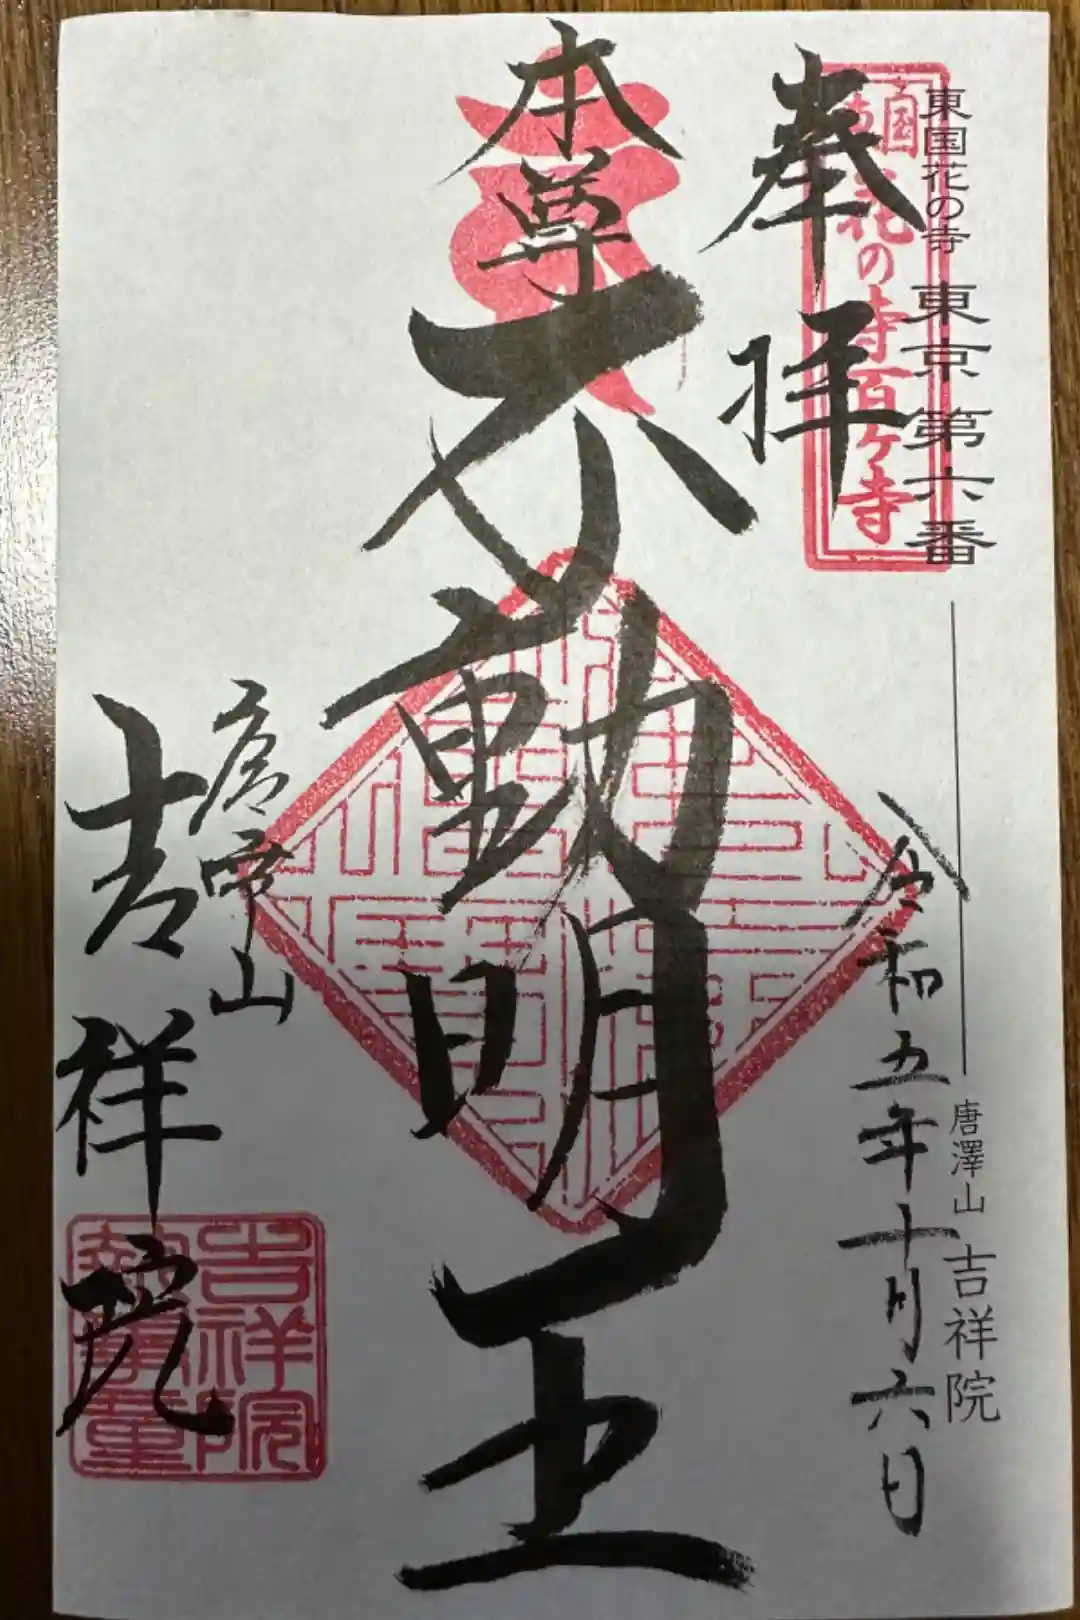 東国花の寺 東京第六番
唐澤山 吉祥院
花の寺百ケ寺
奉拝
令和五年十月六日
本尊
不動明王
唐澤山
吉祥院
吉祥院